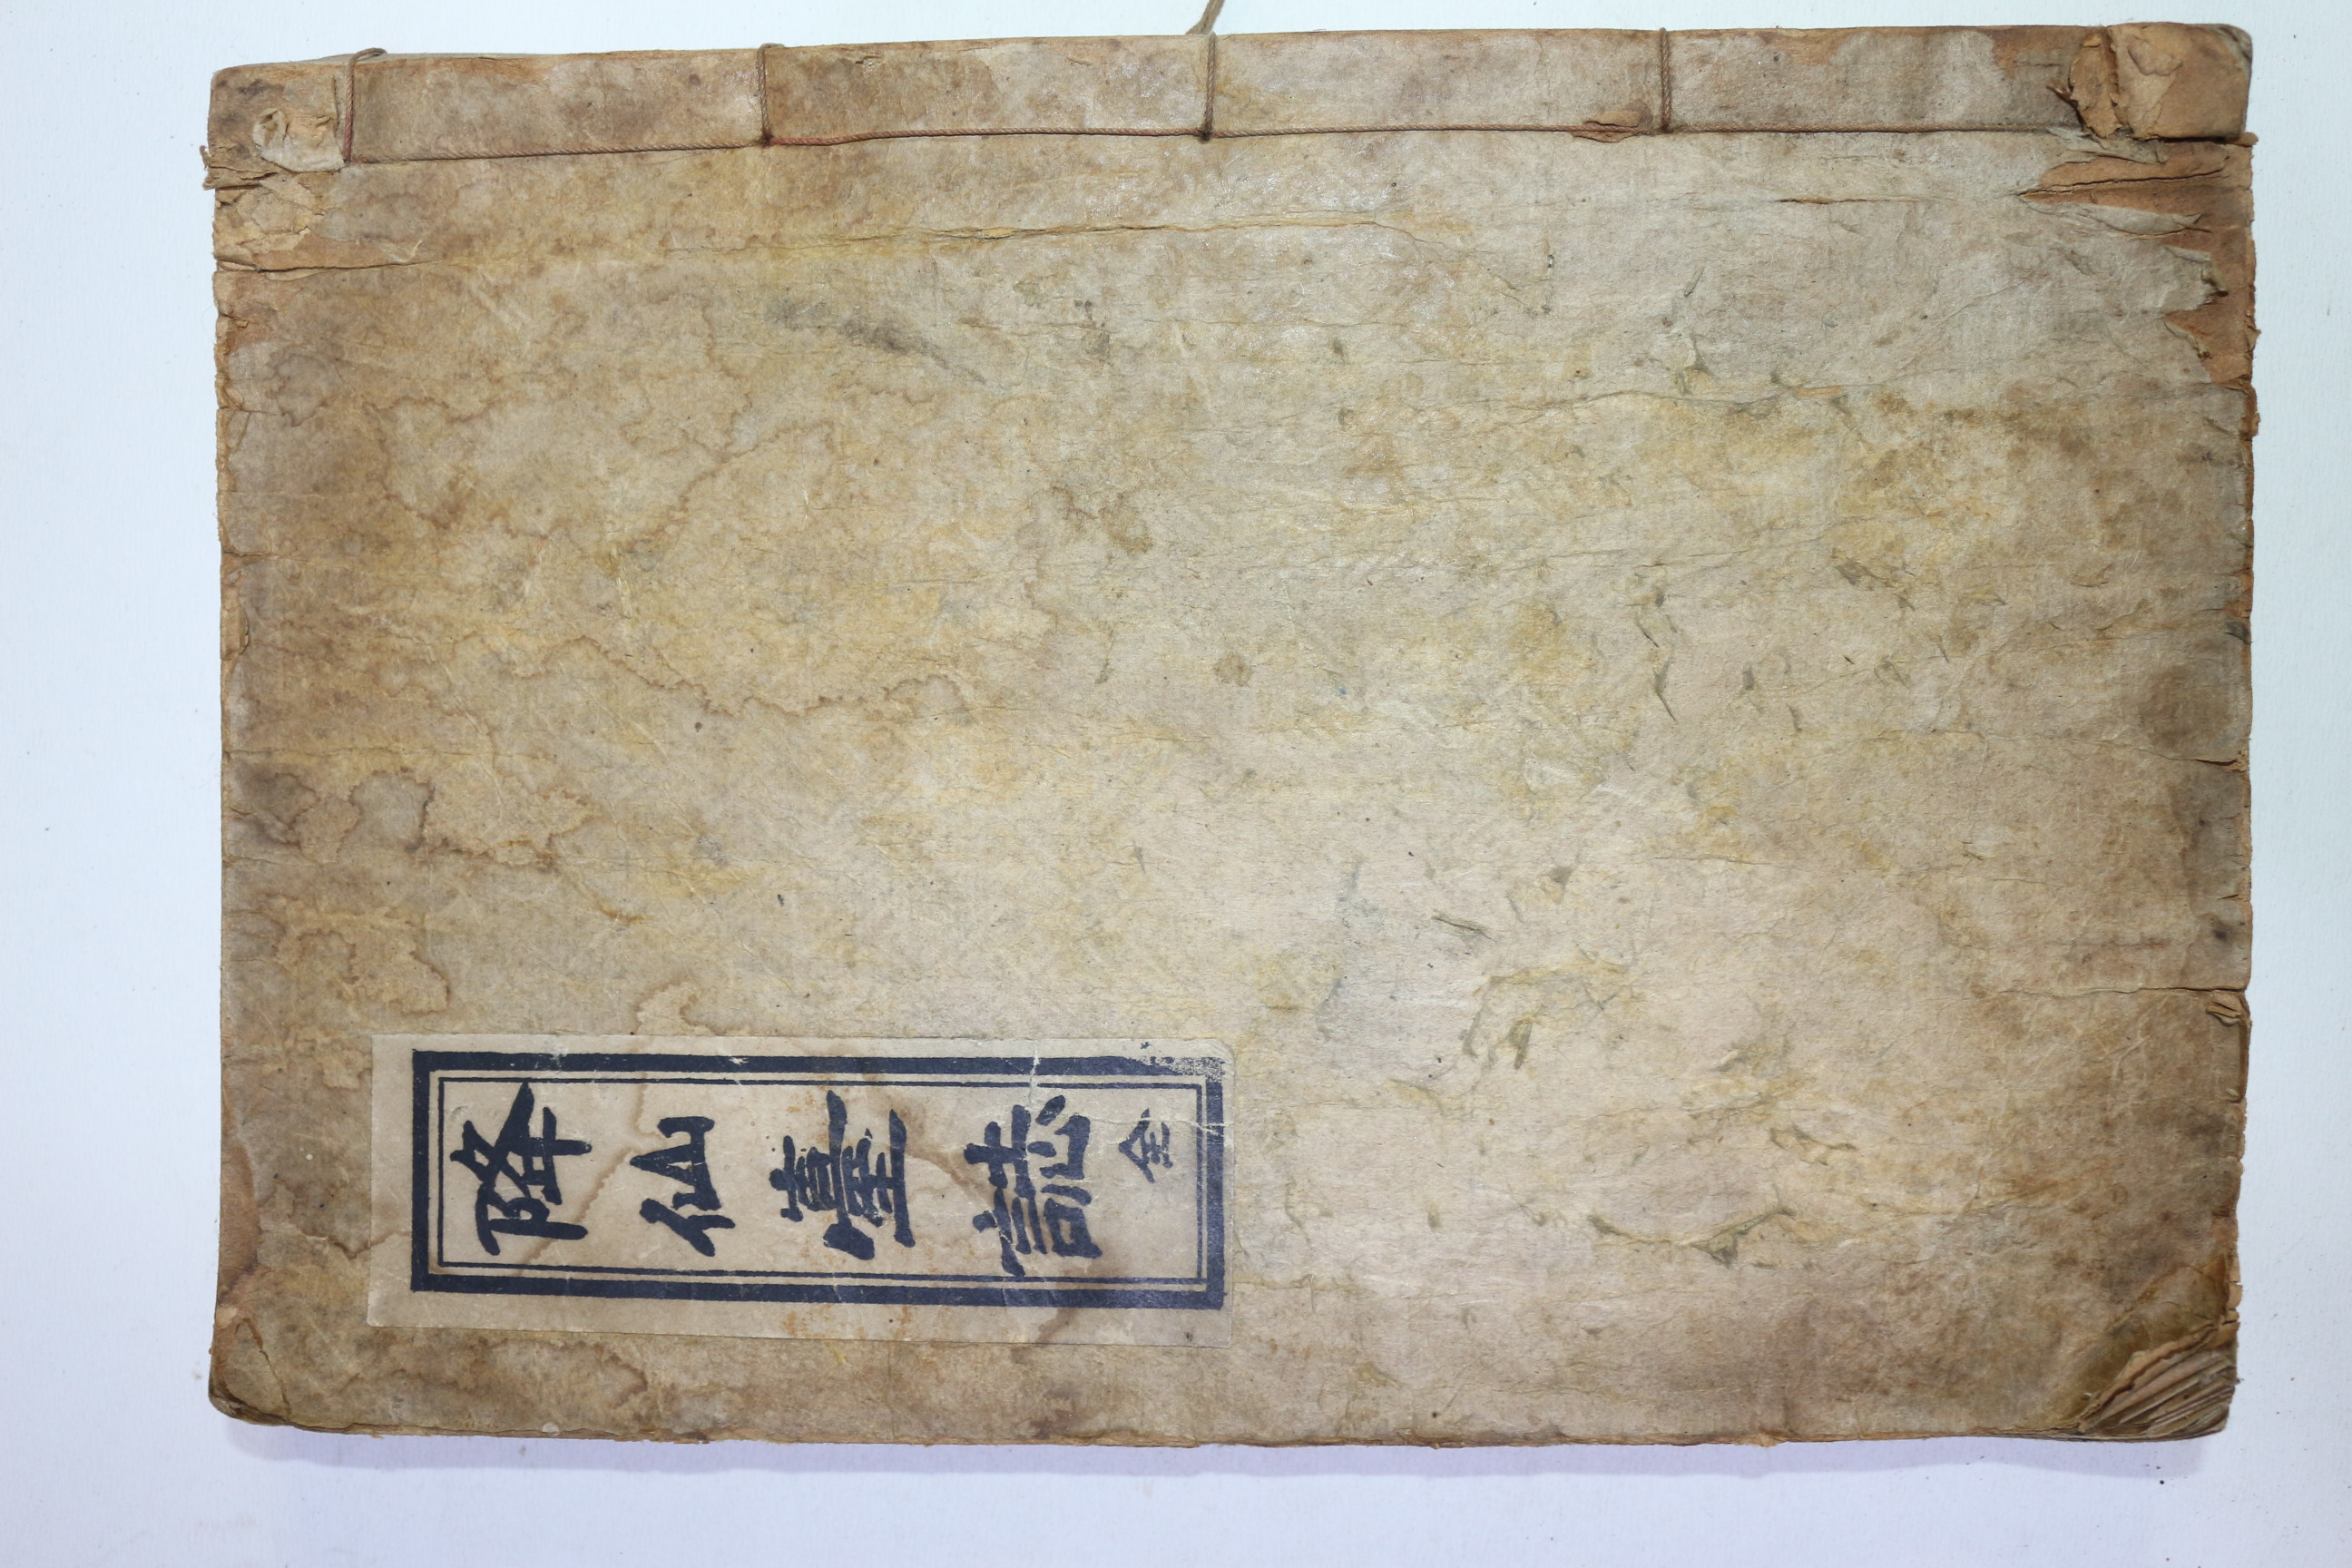 降仙臺誌 全